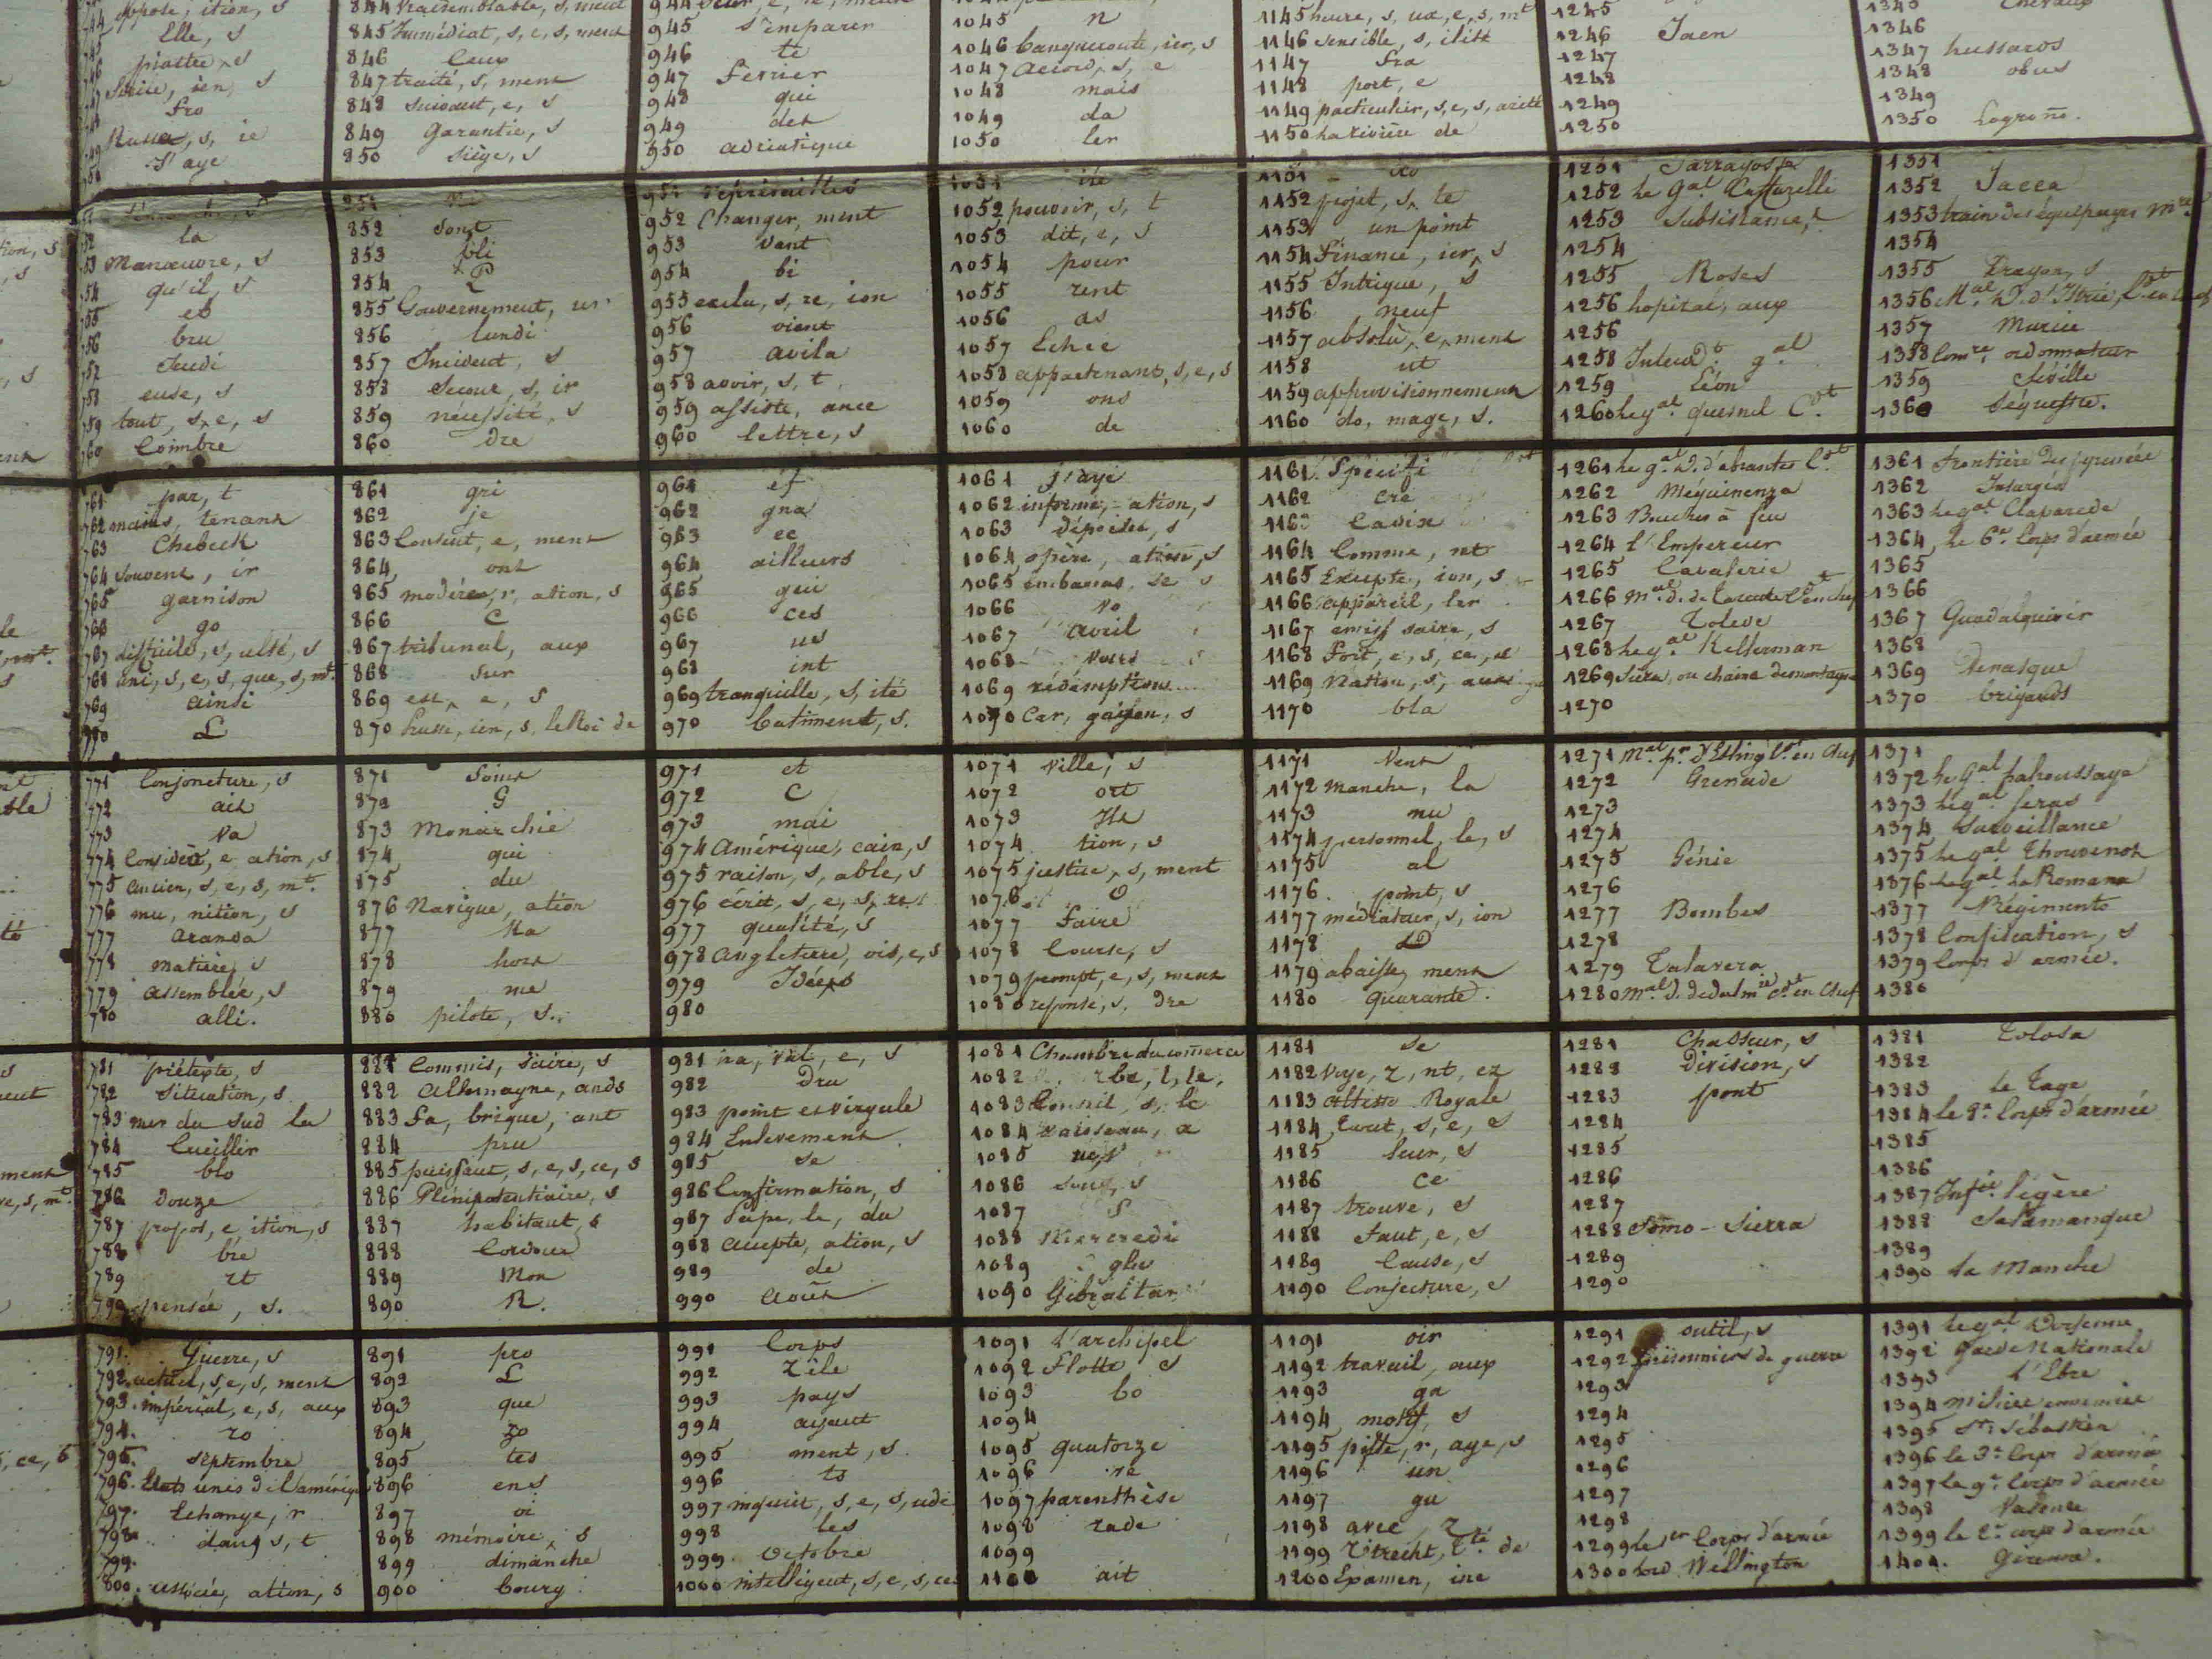 845 Immédiat, s, e, s, ment
846 Ceux
847 traité, s, ment
848 suivant, e, s
849 Garantie, s
850 Siège, s
945 s'emparer
946 te
947 Fevrier
948 qui
949 det
950 adriatique
1045 n
1046 banqueroute, ier, s
1047 accord, s, e
1048 mais
1049 da
1050 ler
1146 sensible, s, ilité
1147 fra
1148 port, e
1149 particulier, s, e, s, arité
1150 la rivière de
1245
1246 Jaen
1247
1248
1249
1250
1346
1347 hussards
1348 obus
1349
1350 Logroño.
la
Manœuvre, s
qu'il, s
et
bru
Jeudi
euse, s
759 tout, s, e, s
760 Coimbre
852 sont
853 pli
854 P
855 Gouvernement, ur
856 lundi
857 Incident, s
858 Secour, s, ir
859 nécessité, s
860 dre
951 représailles
952 Changer, ment
953 vant
954 bi
955 exclu, s, re, ion
956 vient
957 avila
958 avoir, s, t
959 assiste, ance
960 lettre, s
1052 pouvoir, s, t
1053 dit, e, s
1054 pour
1055 rent
1056 as
1057 Echec
1058 appartenant, s, e, s
1059 ons
1060 de
1152 projet, s, te
1153 un point
1154 Finance, ier, s
1155 Intrigue, s
1156 neuf
1157 absolu, e, ment
1158 ut
1159 approvisionnement
1160 do, mage, s.
1251 Tarragone
1252 le Gal Caffarelli
1253 Subsistance, s
1254
1255 Roses
1256 hopital, aux
1256
1258 Intendt gal
1259 Léon
1260 le gal quesnel Cdt
1351
1352 Jacca
1353 train des équipages mres
1354
1355 Dragon, s
1356 Mal D. d'Istrie, Cdt en chef
1357 Murcie
1358 Comre ordonnateur
1359 Séville
1360 Séquestre.
761 par, t
762 main, s, tenant
763 Chebeck
764 souvent, ir
765 garnison
766 go
767 difficile, s, ulté, s
768 uni, s, e, s, que, s, mt.
769 ainsi
L
861 gri
862 je
863 Consent, e, ment
864 ont
865 modérer, r, ation, s
866 C
867 tribunal, aux
868 sur
869 est, e, s
870 Prusse, ien, s, le Roi de
961 ef
962 gna
963 ec
964 ailleurs
965 geu
966 ces
967 us
968 int
969 tranquille, s, ité
970 batiment, s.
1061 j'aye
1062 informe, ation, s
1063 dépêche, s
1064 opère, ation, s
1065 embarras, se s
1066 vo
1067 avril
1068 vous
1069 rédemption
1070 Car, gaison, s
1161 Spécifi
1162 cre
1163 Cadix
1164 Comme, nt
1165 Excepte, ion, s
1166 appareil, ler
1167 emissaire, s
1168 Fort, e, s, ce, s
1169 Nation, s, aux
1170 bla
1261 le gal D. d'abrantes Cdt
1262 Méquinenza
1263 Bouches à feu
1264 l'Empereur
1265 Cavalerie
1266 Mal D. de
1267 Tolede
1268 le gal Kellerman
1269 Sierra, ou chaine de montagne
1270
1361 Frontière des pyrenées
1362 Insurgés
1363 le gal Claparede
1364 le 6e Corps d'armée
1365
1366
1367 Guadalquivir
1368
1369 Venasque
1370 brigands
771 Conjoncture, s
772 ait
773 va
774 Considère, e ation, s
775 ancien, s, e, s, mt.
776 mu, nition, s
777 aranda
778 matière, s
779 assemblée, s
780 alli.
871 soient
872 G
873 Monarchie
874 qui
875 du
876 Navigue, ation
877 Na
878 hors
879 me
880 pilote, s.
971 et
972 C
973 mai
974 Amérique, cain, s
975 raison, s, able, s
976 écrit, s, e, s, re
977 qualité, s
978 Angleterre, ois, e, s
979 Idée, s
980
1071 Ville, s
1072 ort
1073 Ile
1074 tion, s
1075 justice, s, ment
1076 O
1077 Faire
1078 Course, s
1079 prompt, e, s, ment
1080 reponse, s. dre
1171 Vent
1172 manche, la
1173 nu
1174 personnel, le, s
1175 al
1176 point, s
1177 médiateur, s, ion
1178 D
1179 abaisse, ment
1180 quarante.
1271 Mal pr d'Esling Cdt en chef
1272 Grenade
1273
1274
1275 Génie
1276
1277 Bombes
1278
1279 Talavera
1280 Mal D. de dalmie Cdt en Chef
1371
1372 le Gal Lahoussaye
1373 le gal feras
1374 Surveillance
1375 le gal Thouvenot
1376 le gal La Romana
1377 Régiments
1378 Confiscation, s
1379 Corps d'armée.
1380
781 prétexte, s
782 Situation, s
783 mer du Sud la
784 Cueillir
785 blo
786 Douze
787 propos, e ition, s
788 bre
789 rt
790 pensée, s.
881 Commis, saire, s
882 Allemagne, ands
883 Fa, brique, ant
884 pru
885 puissant, s, e, s, ce, s
886 Plénipotentiaire, s
887 habitant, s
888 Cordoue
889 Mon
890 R.
981 na, val, e, s
982 Dru
983 point et virgule
984 Enlevement
985 se
986 Confirmation, s
987 Pape, le, du
988 accepte, ation, s
989 de
990 Août
1081 Chambre du comerce
1082
1083 Conseil, s, le
1084 vaisseau, x
1085
1086 sous, s
1087 S
1088 Mercredi
1089 gle
1090 Gibraltar
1181 se
1182 voye, r, nt, ez
1183 Altesse Royale
1184 tout, s, e, s
1185 leur, s
1186 Ce
1187 trouve, s
1188 Faut, e, s
1189 Cause, s
1190 Conjecture, s
1281 Chasseur, s
1282 Division, s
1283 pont
1284
1285
1286
1287
1288 Somo-Sierra
1289
1290
1381 Tolosa
1382
1383 le Tage
1384 le 8e Corps d'armée
1385
1386
1387 Infie légère
1388 Salamanque
1389
1390 la Manche
791. Guerre, s
792. actuel, s, e, s, ment
793. impérial, e, s, aux
794. ro
795. Septembre
796. Etats unis de l'amérique
797. Echange, r
798. dans, t
799.
800. associé, ation, s
891 pro
892 L
893 que
894 zo
895 tes
896 ens
897 oi
898 mémoire, s
899 dimanche
900 bourg
991 Corps
992 Zèle
993 pays
994 ayant
995 ment, s
996 ts
997 inquiet, s, e, s, ude
998 les
999 Octobre
1000 intelligent, s, e, s, ce
1091 l'archipel
1092 Flotte s
1093 bo
1094
1095 quatorze
1096 re
1097 parenthèse
1098 rade
1099
1100 ait
1191 oir
1192 travail, aux
1193 ga
1194 motif, s
1195 pille, r, age, s
1196 un
1197 gu
1198 avec
1199 Utrecht, Tté de
1200 Examen, ine
1291 outil, s
1292 prisonniers de guerre
1293
1294
1295
1296
1297
1298
1299 le 1er Corps d'armée
1300 Lord Wellington
1391 le gal Dorsenne
1392 Garde Nationale
1393 l'Ebre
1394 milice ennemie
1395 St Sébastien
1396 le 3e Corps d'armée
1397 le 9e Corps d'armée
1398 Valence
1399 le 2e corps d'armée
1400. Girone.